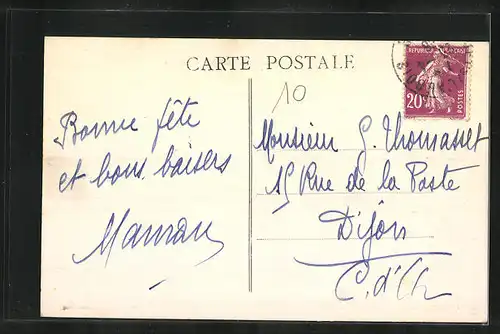 CARTE POSTALE
10
REPUBLIQUE FRANÇAISE
20
POSTES
Bonne fête
et bons baisers
Maman
Monsieur G. Thomasset
15 Rue de la Poste
Dijon
C. d'Or